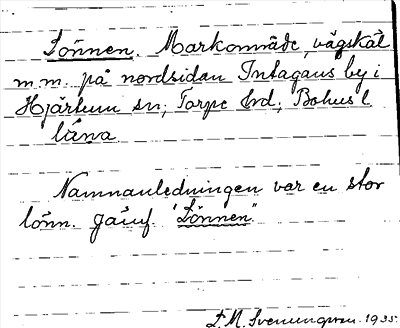 Lönnen. Markområde, vägskäl
m.m. på nordsidan Intagans by i
Hjärtum sn, Torpe hrd, Bohus l
läna.
Namnanledningen var en stor
lönn. Jämf. "Lönnen"
L. M. Svenungsson 1935